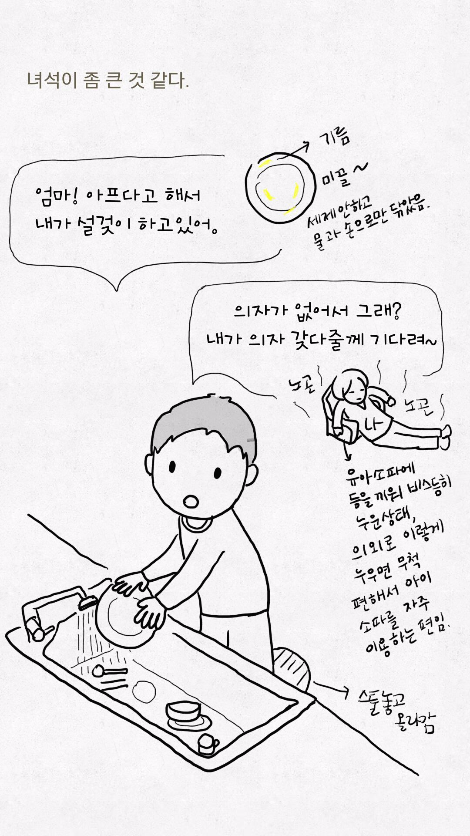 녀석이 좀 큰 것 같다.
기름
미끌~
세제 안하고
물과 손으로만 닦았음.
엄마! 아프다고 해서
내가 설겆이 하고있어.
의자가 없어서 그래?
내가 의자 갖다줄께 기다려~
노곤
노곤
나
유아소파에
등을 끼워 비스듬히
누운상태,
의외로 이렇게
누우면 무척
편해서 아이
소파를 자주
이용하는 편임.
스툴놓고
올라감